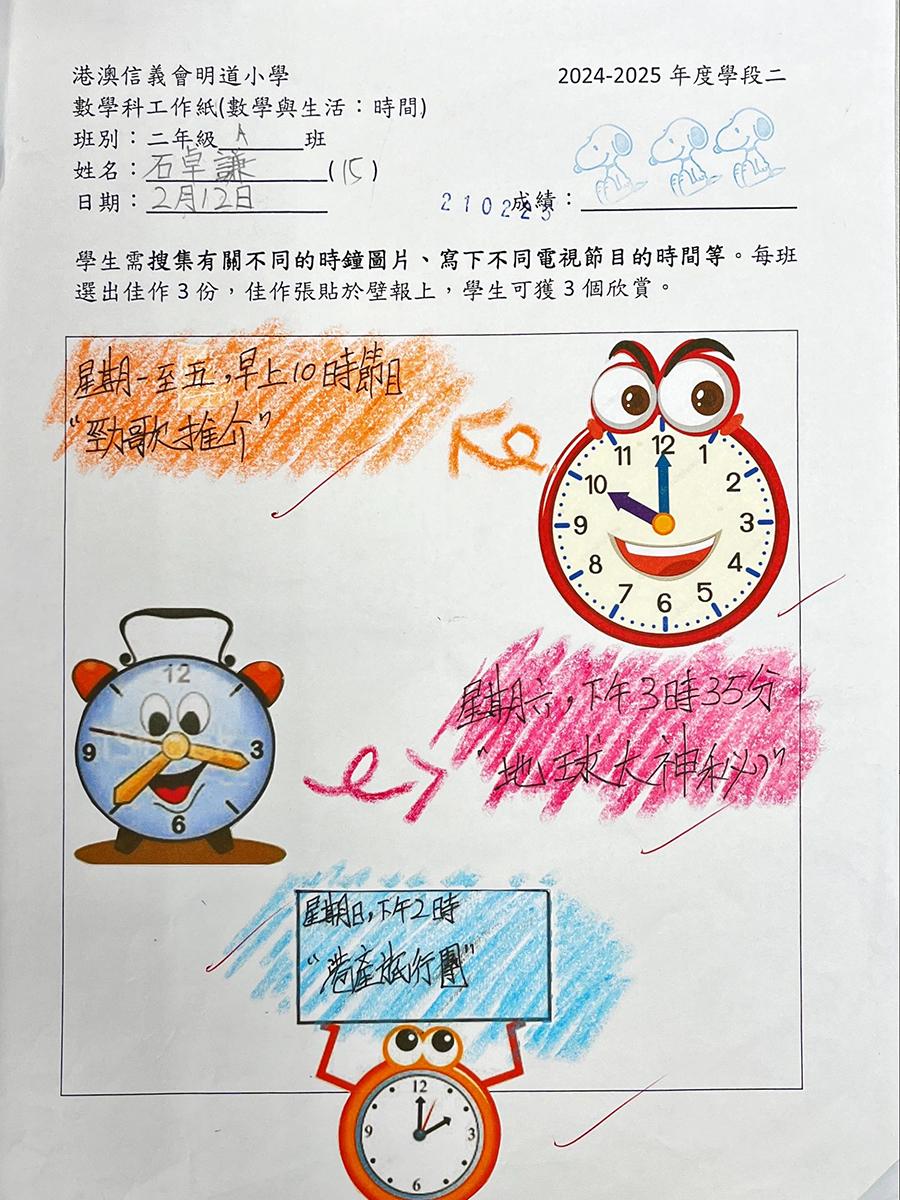 港澳信義會明道小學
2024-2025 年度學段二
數學科工作紙(數學與生活：時間)
班別：二年級 A 班
姓名：石卓謙(15)
日期：2月12日
210225
成績：
學生需搜集有關不同的時鐘圖片、寫下不同電視節目的時間等。每班
選出佳作 3 份，佳作張貼於壁報上，學生可獲 3 個欣賞。
星期一至五，早上10時節目
“勁歌推介”
12
1
2
3
4
5
6
7
8
9
10
11
12
3
6
9
星期六，下午3時35分
“地球大神秘”
星期日，下午2時
“港產旅行團”
12
3
6
9